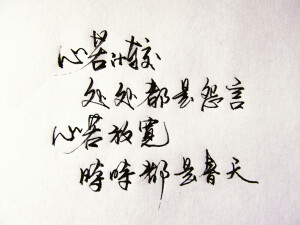 心若计较
处处都是怨言
心若放宽
時時都是春天